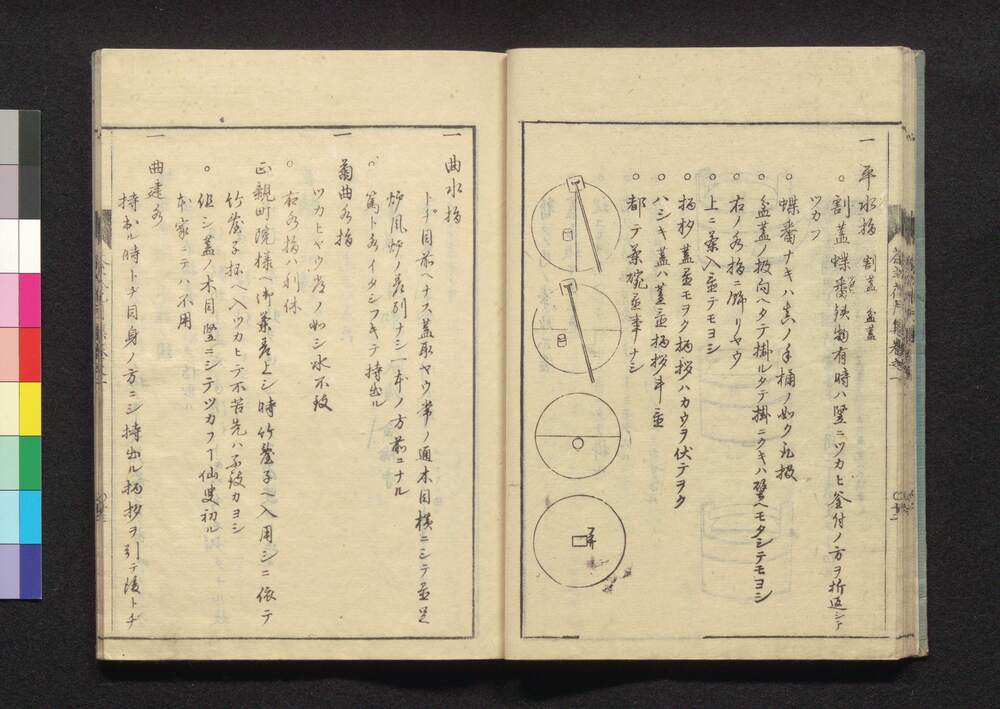 一 平水指 割蓋 盆蓋
○ 割蓋蝶番鉄物有時ハ竪ニツカヒ釜付ノ方ヲ折返シテ
ツカフ
○ 蝶番ナキハ真ノ手桶ノ如ク九扱
○ 盆蓋ノ扱向ヘタテ掛ルタテ掛ニクキハ壁ヘモタシテモヨシ
○ 右ノ水指ニ飾リヤウ
○ 上ニ茶入置テモヨシ
○ 柄杓蓋置モヲク柄杓ハカウヲ伏テヲク
○ ハシキ蓋ハ蓋置柄杓斗置
○ 都テ茶碗置事ナシ
一 曲水指
トヂ目前ヘナス蓋取ヤウ常ノ通木目横ニシテ置足
炉風炉ノ差別ナシ一本ノ方前ニナル
○ 篤ト水イタシフキテ持出ル
一 菊曲水指
ツカヒヤウ常ノ如シ水不改
○ 右水指ハ利休
正親町院様ヘ御茶差上シ時竹釜子ヘ入用シニ依テ
竹釜子抔ヘ入ツカヒテ不苦先ハ不改カヨシ
○ 但シ蓋ノ木目竪ニシテツカフ丁仙叟初ル
本家ニテハ不用
一 曲建水
持出ル時トチ目身ノ方ニシ持出ル柄杓ヲ引テ後トチ